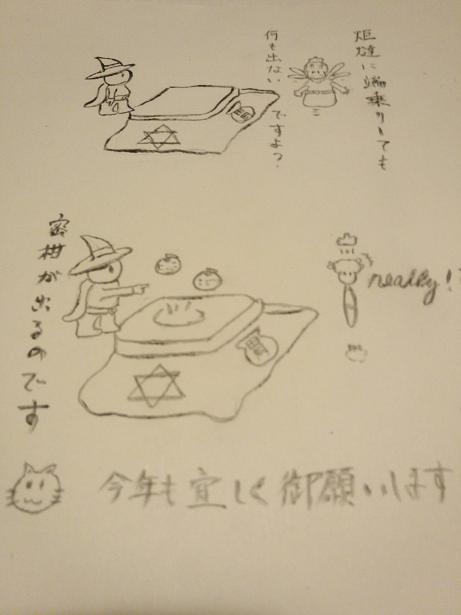 炬燵に乗りしても
何も出ない
ですよ
蜜柑が出るのです
really!?
今年も宜しく御願いします